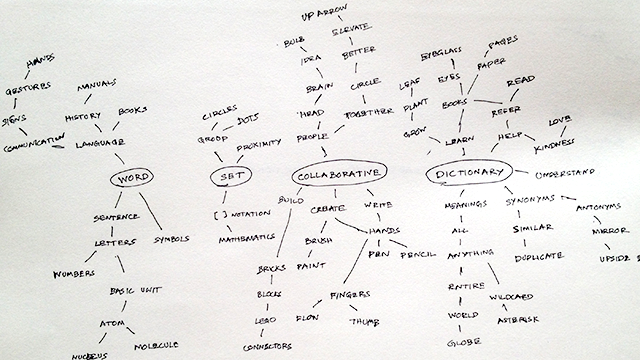 UP ARROW
BULB
ELEVATE
IDEA
BETTER
BRAIN
CIRCLE
HEAD
TOGETHER
PEOPLE
HANDS
GESTURES
SIGNS
COMMUNICATION
MANUALS
HISTORY
BOOKS
LANGUAGE
WORD
SENTENCE
LETTERS
SYMBOLS
NUMBERS
BASIC UNIT
ATOM
MOLECULE
NUCLEUS
CIRCLES
DOTS
GROUP
PROXIMITY
SET
[ ] NOTATION
MATHEMATICS
COLLABORATIVE
BUILD
CREATE
WRITE
HANDS
BRUSH
PAINT
PEN
PENCIL
BRICKS
BLOCKS
LEGO
CONNECTORS
FINGERS
THUMB
EYEGLASS
EYES
LEAF
PLANT
GROW
BOOKS
PAGES
PAPER
READ
REFER
HELP
LOVE
KINDNESS
LEARN
DICTIONARY
UNDERSTAND
MEANINGS
ALL
ANYTHING
ENTIRE
WORLD
GLOBE
WILDCARD
ASTERISK
SYNONYMS
SIMILAR
DUPLICATE
ANTONYMS
MIRROR
UPSIDE